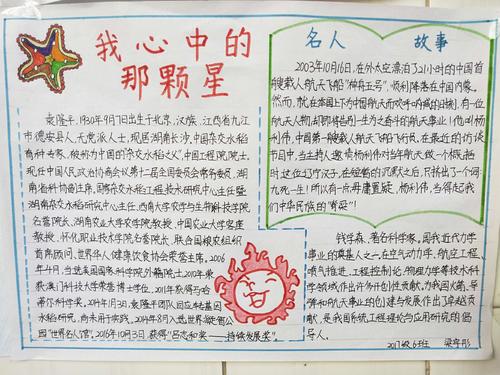 我心中的
那颗星
袁隆平，1930年9月7日出生于北京，汉族，江西省九江
市德安县人，无党派人士，现居湖南长沙，中国杂交水稻
育种专家，被称为中国的"杂交水稻之父"，中国工程院院士，
现任中国人民政治协商会议第十二届全国委员会常务委员，湖
南省科协副主席，国家杂交水稻工程技术研究中心主任暨
湖南杂交水稻研究中心主任，西南大学农学与生物科技学院
名誉院长，湖南农业大学农学院教授，中国农业大学客座
教授，怀化职业技术学院名誉院长，联合国粮农组织
首席顾问，世界华人健康饮食协会荣誉主席。2006
年4月，当选美国国家科学院外籍院士，2010年荣
获澳门科技大学荣誉博士学位，2011年获得马哈
蒂尔科学奖。2014年1月3日，袁隆平团队回应转基因
水稻研究，尚未用于实践，2014年8月入选世界纪录协会
"世界名人馆"。2016年10月3日，获得"吕志和奖——持续发展奖"。
名人 故事
2003年10月16日，在外太空漂泊了21小时的中国首
艘载人航天飞船"神舟五号"，顺利降落在中国内蒙。
然而，就在举国上下为中国航天而欢呼呐喊的时刻，有一位
航天人物却即将告别一生为之奋斗的航天事业！他叫杨
利伟，中国第一艘载人航天飞船飞行员，在最近的访谈
节目中，当主持人邀请杨利伟对当年航天做一个概括
时这位辽宁汉子，在短暂的沉默之后，只括出了一个词：
九死一生！所以有一点毋庸置疑，杨利伟，当得起我
们中华民族的"脊梁"！
钱学森，著名科学家。国我近代力学
事业的奠基人之一，在空气动力学、航空工程、
喷气推进、工程控制论、物理力学等技术科
学领域作出许多开创性贡献，为我国火箭、导
弹和航天事业的创建与发展作出了卓越贡
献，是我国系统工程理论与应用研究的倡
导人。
2017级6班 梁宇彤